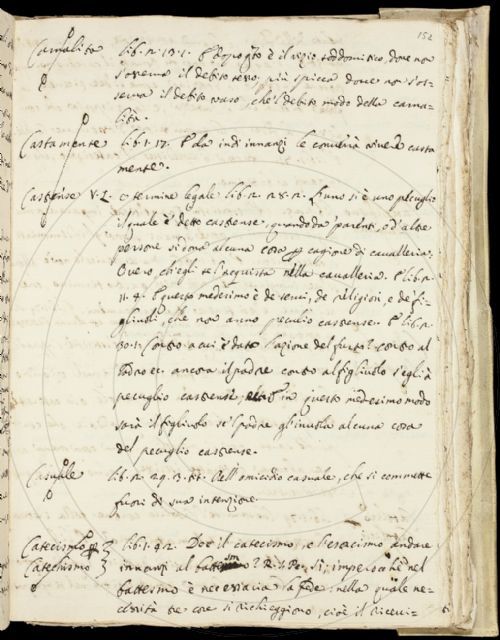 152
Carnalità lib. 2. 13. 1. E Ropogto è il vizio soddomitico, dove non
s'osserva il debito sesso, più spicca dove no s'os-
serva il debito vaso, che'l debito modo della carna-
lità.
Castamente lib. 1. 17. E da indi innanzi le converrà vivere casta
mente.
Castrense V. L. o termine legale lib. 2. 28. 2. E uno si è uno peculio
il quale è detto castrense, quando da' parenti, o d'altre
persone si dona alcuna cosa p cagione di cavalleria.
Ovvero ch'egli se l'acquista nella cavalleria. E lib. 2.
11. 4. E questo medesimo è de servi, de religiosi, e de fi-
gliuoli, che non anno peculio castrense. E lib. 2.
30. 1. Contro a cui è data l'azione del furto? contro al
ladro ec. ancora il padre contro al figliuolo s'egli à
pecuglio castrense, in questo medesimo modo
sarà il figliuolo se'l padre gl'invola alcuna cosa
del pecuglio castrense.
Casuale lib. 2. 29. 3. tt. Dell'omicidio casuale, che si commette
fuori di sua intenzione.
Catecismo lib. 1. 9. 2. Dee il catecismo, e l'esorcismo andare
Catechismo innanzi al ? R. S. Po. Sì; imperocchè nel
battesimo è necessaria la fede, nella quale ne-
cessità tre cose si richieggiono, cioè il ricevi-